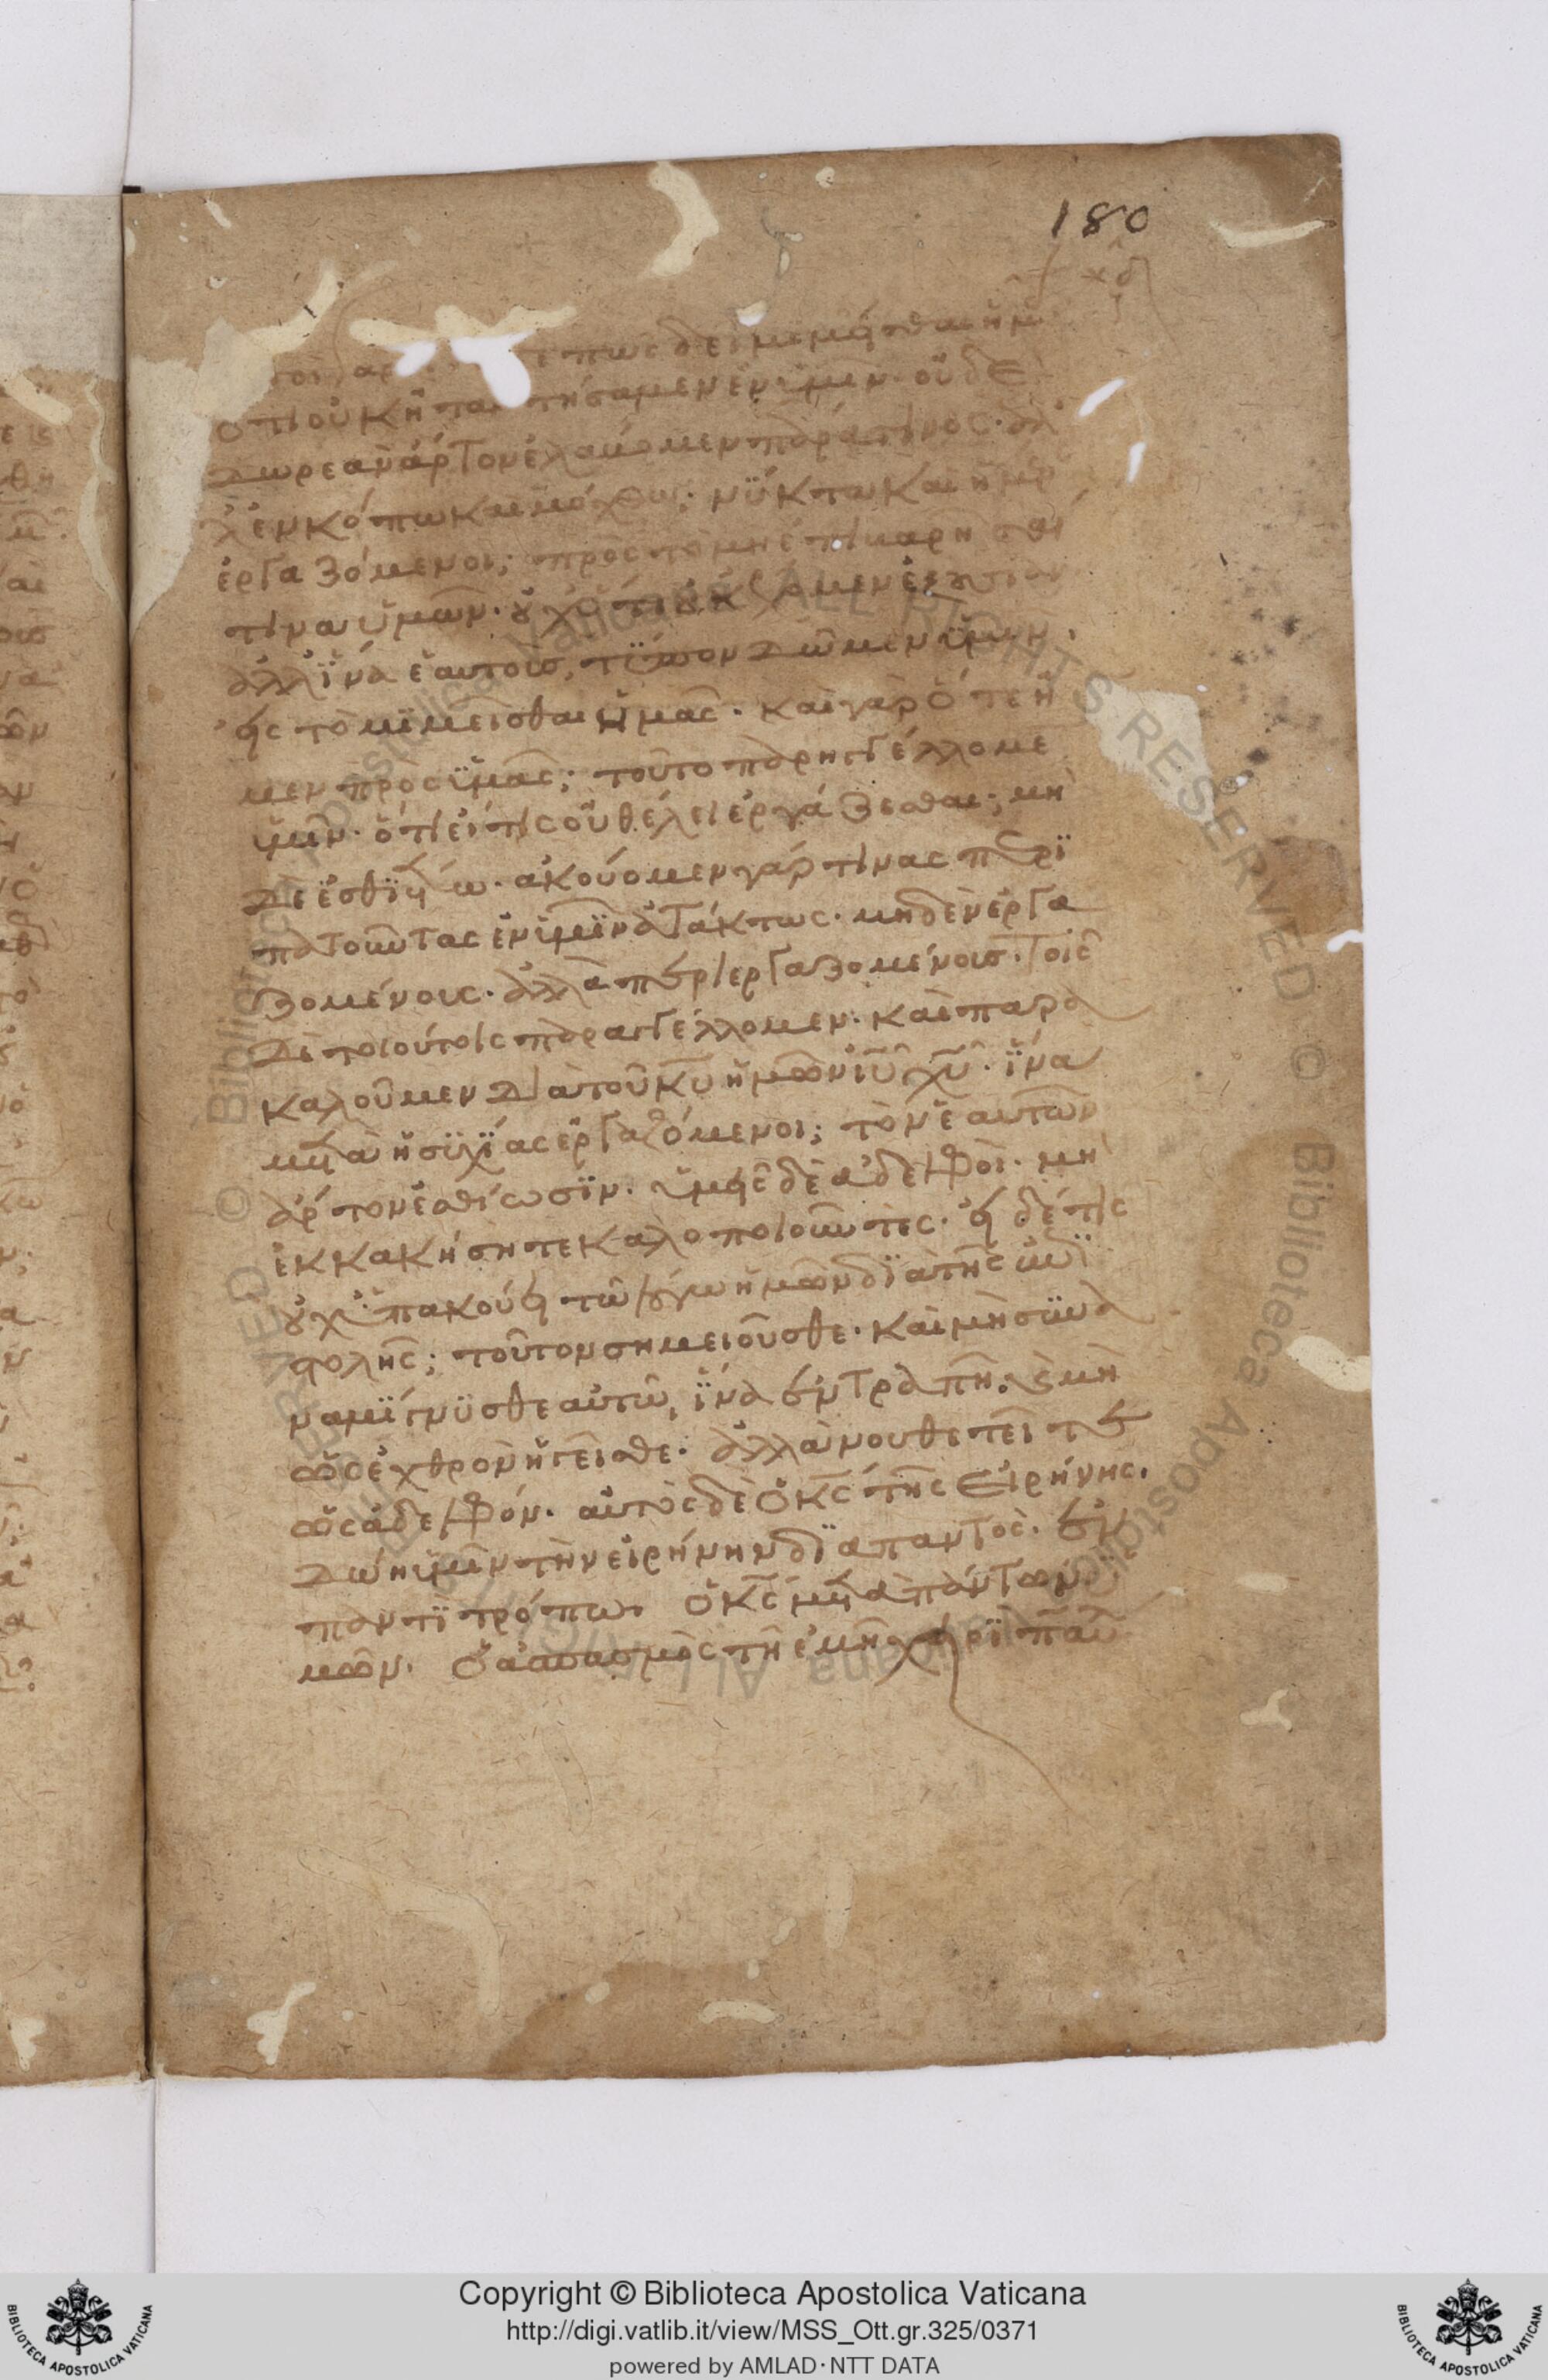 180
πως δεῖ μιμεῖσθαι ἡμ
ὅτι οὐκ ἠτα τήσαμεν ἐν ὑμῖν· οὐδὲ
δωρεὰν ἄρτον ἐλάβομεν παρά τινος· ἀλ
λ' ἐν κόπω καὶ μόχθω· νύκτα καὶ ἡμέρ
ἐργαζόμενοι; πρὸς τὸ μὴ ἐπιβαρῆσαί
τινα ὑμῶν· οὐχ ὅτι οὐκ ἔχομεν ἐξουσίαν
ἀλλ' ἵνα ἑαυτοὺς τύπον δῶμεν ὑμῖν·
εἰς τὸ μιμεῖσθαι ἡμᾶς· καὶ γὰρ ὅτε ἦ
μεν πρὸς ὑμᾶς; τοῦτο παρηγγέλλομε
ὑμῖν· ὅτι εἴ τις οὐ θέλει ἐργάζεσθαι; μὴ
δὲ ἐσθιέτω· ἀκούομεν γάρ τινας περι
πατοῦντας ἐν ὑμῖν ἀτάκτως· μηδὲν ἐργα
ζομένους· ἀλλὰ περιεργαζομένους· τοῖς
δὲ τοιούτοις παραγγέλλομεν· καὶ παρα
καλοῦμεν διὰ τοῦ κυ ἡμῶν ιυ χυ· ἵνα
μετὰ ἡσυχίας ἐργαζόμενοι; τὸν ἑαυτῶν
ἄρτον ἐσθίωσιν· ὑμεῖς δὲ ἀδελφοὶ· μὴ
ἐκκακήσητε καλοποιοῦντες· εἰ δέ τις
οὐχ ὑπακούει τῶ λόγω ἡμῶν διὰ τῆς ἐπι
στολῆς; τοῦτον σημειοῦσθε· καὶ μὴ συνα
ναμίγνυσθε αὐτῶ, ἵνα ἐντραπῆ· καὶ μὴ
ὡς ἐχθρὸν ἡγεῖσθε· ἀλλὰ νουθετεῖτε
ὡς ἀδελφόν· αὐτὸς δὲ ὁ κς τῆς εἰρήνης·
δώη ὑμῖν τὴν εἰρήνην διαπαντὸς· ἐν
παντὶ τρόπω· ὁ κς μετὰ πάντων ὑ
μῶν· ὁ ἀσπασμὸς τῆ ἐμῆ χειρὶ παυ
Copyright © Biblioteca Apostolica Vaticana
http://digi.vatlib.it/view/MSS_Ott.gr.325/0371
powered by AMLAD·NTT DATA
BIBLIOTECA APOSTOLICA VATICANA
BIBLIOTECA APOSTOLICA VATICANA